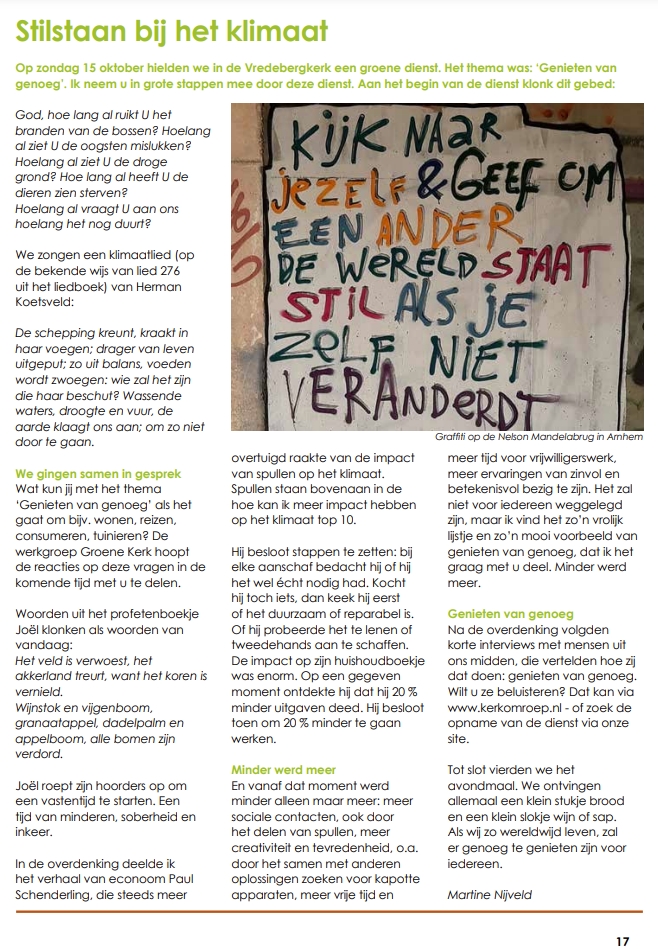 Stilstaan bij het klimaat
Op zondag 15 oktober hielden we in de Vredebergkerk een groene dienst. Het thema was: ‘Genieten van
genoeg’. Ik neem u in grote stappen mee door deze dienst. Aan het begin van de dienst klonk dit gebed:
God, hoe lang al ruikt U het
branden van de bossen? Hoelang
al ziet U de oogsten mislukken?
Hoelang al ziet U de droge
grond? Hoe lang al heeft U de
dieren zien sterven?
Hoelang al vraagt U aan ons
hoelang het nog duurt?
We zongen een klimaatlied (op
de bekende wijs van lied 276
uit het liedboek) van Herman
Koetsveld:
De schepping kreunt, kraakt in
haar voegen; drager van leven
uitgeput; zo uit balans, voeden
wordt zwoegen: wie zal het zijn
die haar beschut? Wassende
waters, droogte en vuur, de
aarde klaagt ons aan; om zo niet
door te gaan.
We gingen samen in gesprek
Wat kun jij met het thema
‘Genieten van genoeg’ als het
gaat om bijv. wonen, reizen,
consumeren, tuinieren? De
werkgroep Groene Kerk hoopt
de reacties op deze vragen in de
komende tijd met u te delen.
Woorden uit het profetenboekje
Joël klonken als woorden van
vandaag:
Het veld is verwoest, het
akkerland treurt, want het koren is
vernield.
Wijnstok en vijgenboom,
granaatappel, dadelpalm en
appelboom, alle bomen zijn
verdord.
Joël roept zijn hoorders op om
een vastentijd te starten. Een
tijd van minderen, soberheid en
inkeer.
In de overdenking deelde ik
het verhaal van econoom Paul
Schenderling, die steeds meer
KIJK NAAR
JEZELF & GEEF OM
EEN ANDER
DE WERELD STAAT
STIL ALS JE
ZELF NIET
VERANDERDT
Graffiti op de Nelson Mandelabrug in Arnhem
overtuigd raakte van de impact
van spullen op het klimaat.
Spullen staan bovenaan in de
hoe kan ik meer impact hebben
op het klimaat top 10.
Hij besloot stappen te zetten: bij
elke aanschaf bedacht hij of hij
het wel écht nodig had. Kocht
hij toch iets, dan keek hij eerst
of het duurzaam of reparabel is.
Of hij probeerde het te lenen of
tweedehands aan te schaffen.
De impact op zijn huishoudboekje
was enorm. Op een gegeven
moment ontdekte hij dat hij 20 %
minder uitgaven deed. Hij besloot
toen om 20 % minder te gaan
werken.
Minder werd meer
En vanaf dat moment werd
minder alleen maar meer: meer
sociale contacten, ook door
het delen van spullen, meer
creativiteit en tevredenheid, o.a.
door het samen met anderen
oplossingen zoeken voor kapotte
apparaten, meer vrije tijd en
meer tijd voor vrijwilligerswerk,
meer ervaringen van zinvol en
betekenisvol bezig te zijn. Het zal
niet voor iedereen weggelegd
zijn, maar ik vind het zo’n vrolijk
lijstje en zo’n mooi voorbeeld van
genieten van genoeg, dat ik het
graag met u deel. Minder werd
meer.
Genieten van genoeg
Na de overdenking volgden
korte interviews met mensen uit
ons midden, die vertelden hoe zij
dat doen: genieten van genoeg.
Wilt u ze beluisteren? Dat kan via
www.kerkomroep.nl - of zoek de
opname van de dienst via onze
site.
Tot slot vierden we het
avondmaal. We ontvingen
allemaal een klein stukje brood
en een klein slokje wijn of sap.
Als wij zo wereldwijd leven, zal
er genoeg te genieten zijn voor
iedereen.
Martine Nijveld
17